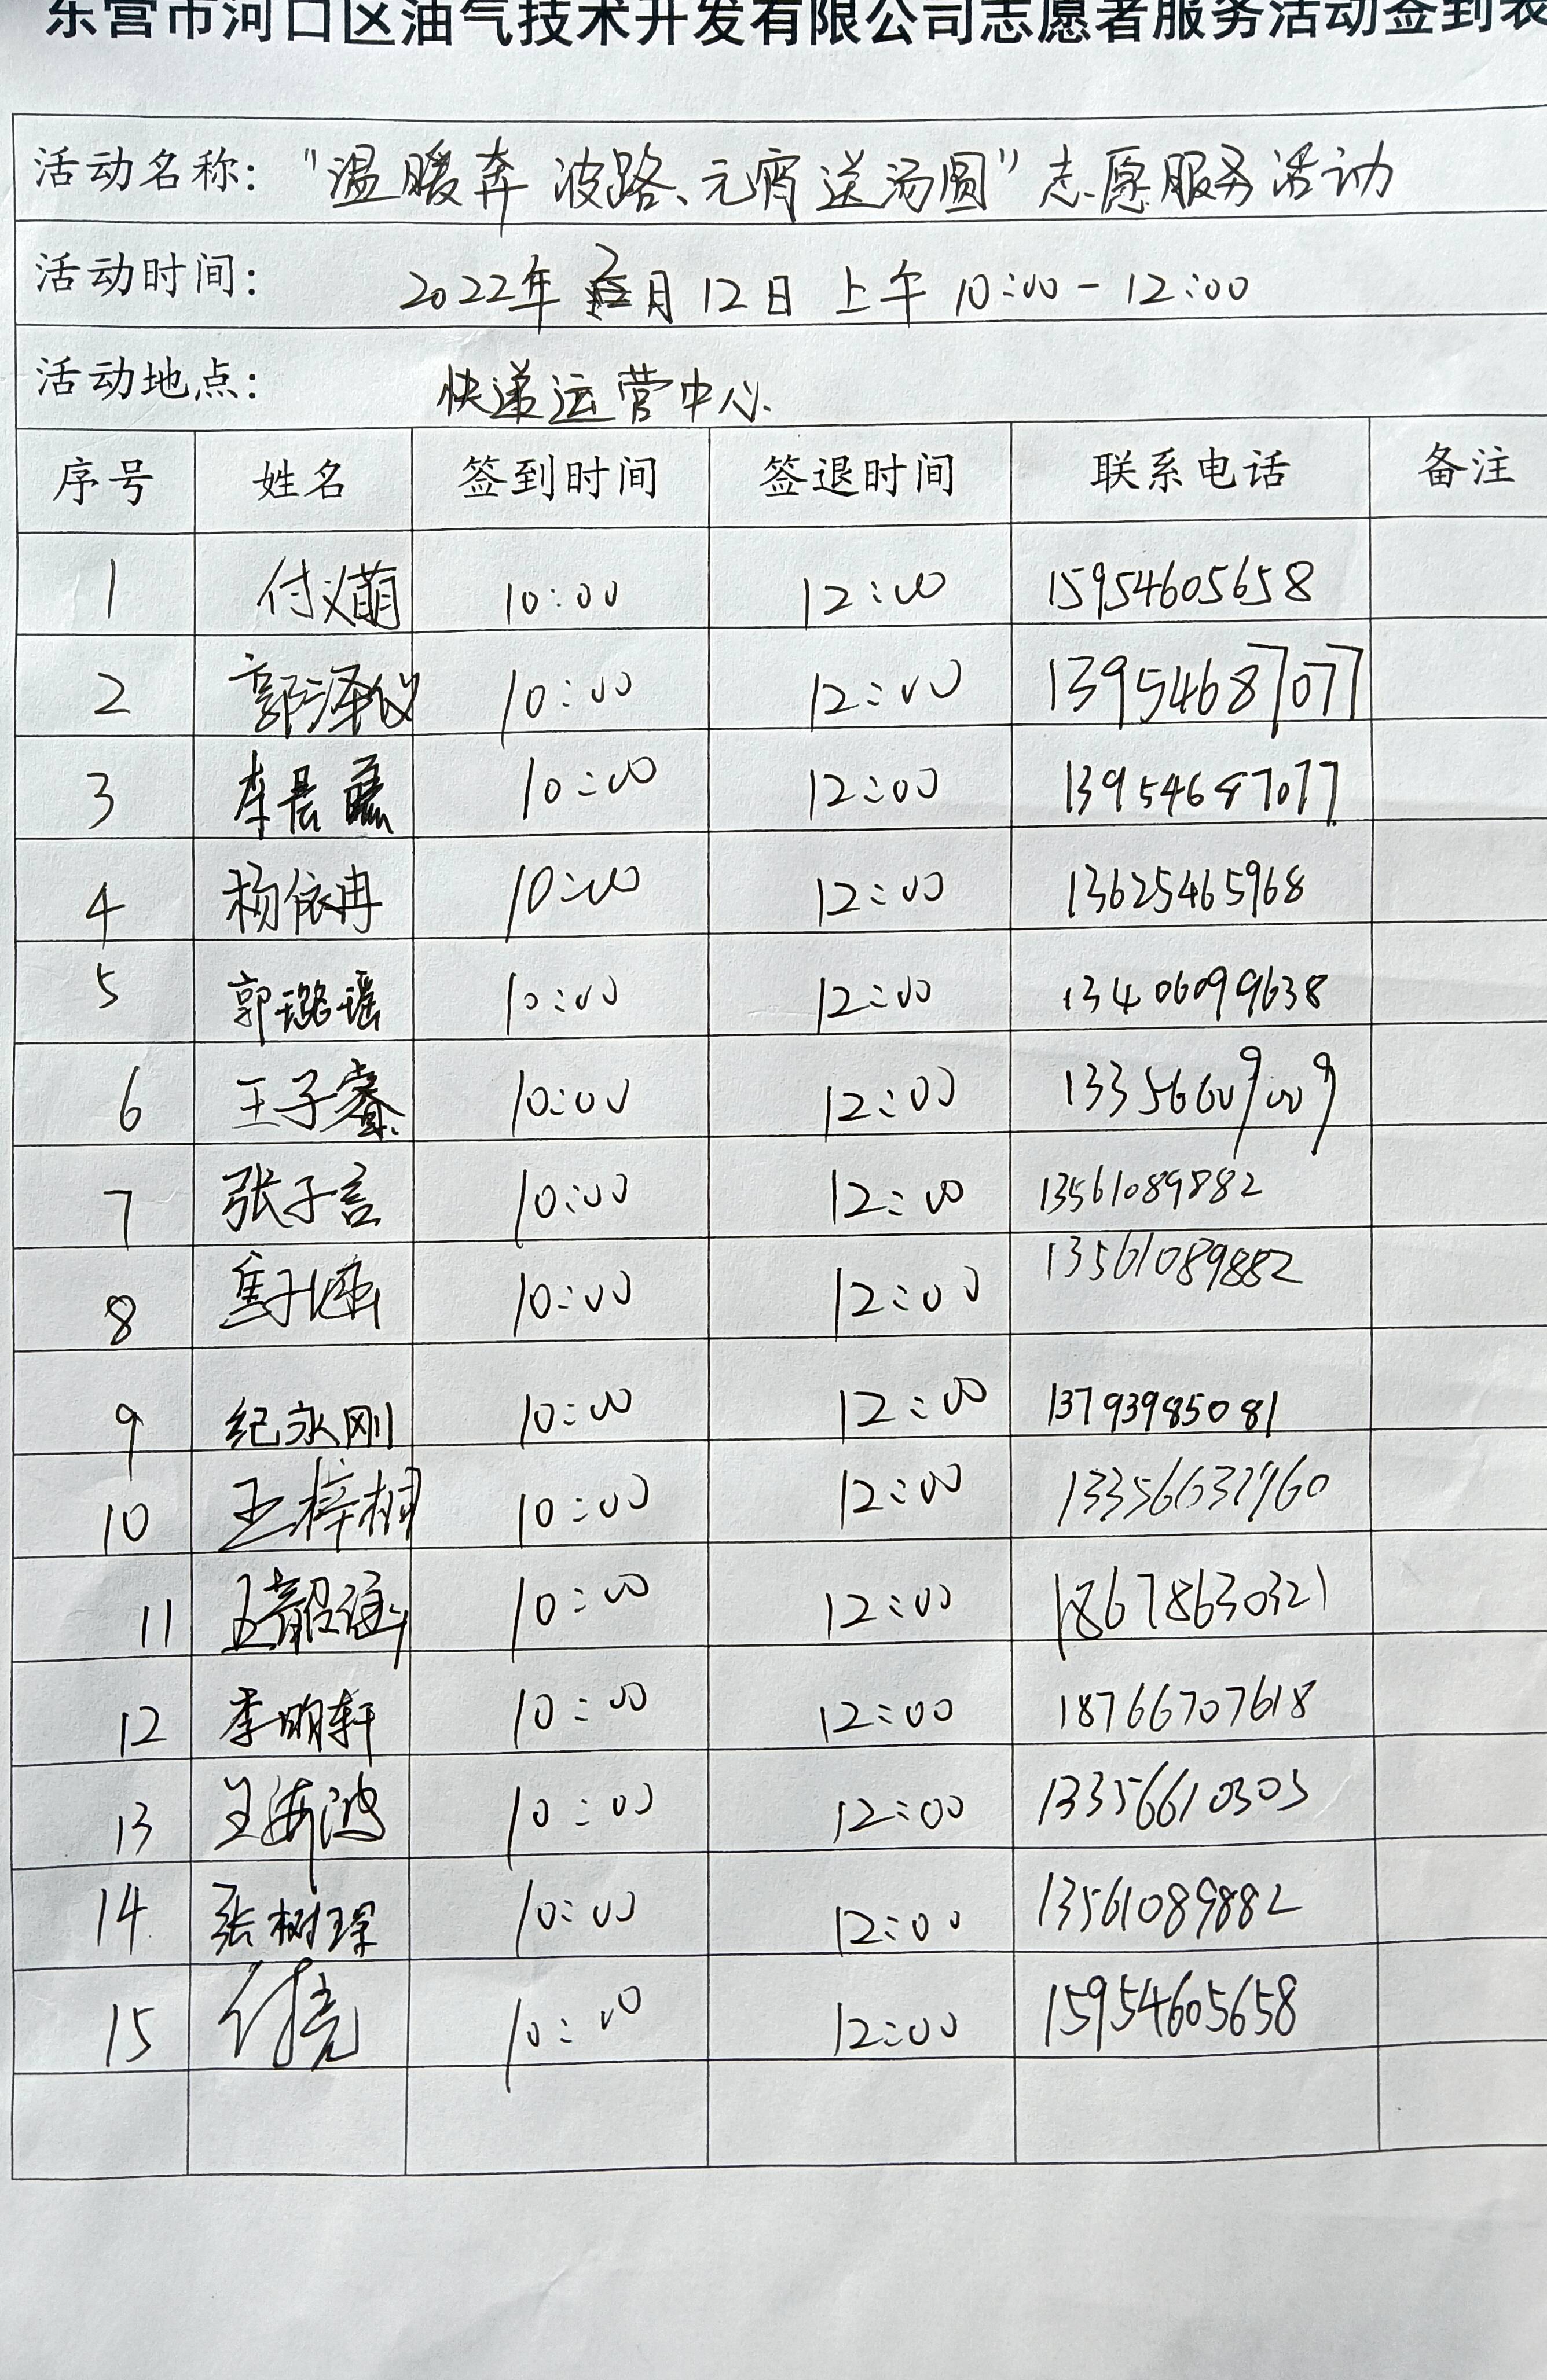 东营市河口区油气技术开发有限公司志愿者服务活动签到表
活动名称: "温暖奔波路、元宵送汤圆" 志愿服务活动
活动时间: 2022年 2月12日 上午 10:00-12:00
活动地点: 快递运营中心
序号 姓名 签到时间 签退时间 联系电话 备注
1 付义萌 10:00 12:00 15954605658
2 郭泽仪 10:00 12:00 13954687077
3 李晨 10:00 12:00 13954687077
4 杨依冉 10:00 12:00 13625465968
5 郭璐瑶 10:00 12:00 13406099638
6 王子睿 10:00 12:00 13356609009
7 张子言 10:00 12:00 13561089882
8 10:00 12:00 13561089882
9 纪永刚 10:00 12:00 13793985081
10 王梓桐 10:00 12:00
11 王韶涵 10:00 12:00 18678630321
12 李明轩 10:00 12:00 18766707618
13 王海波 10:00 12:00 13356610303
14 张树琛 10:00 12:00 13561089882
15 付亮 10:00 12:00 15954605658